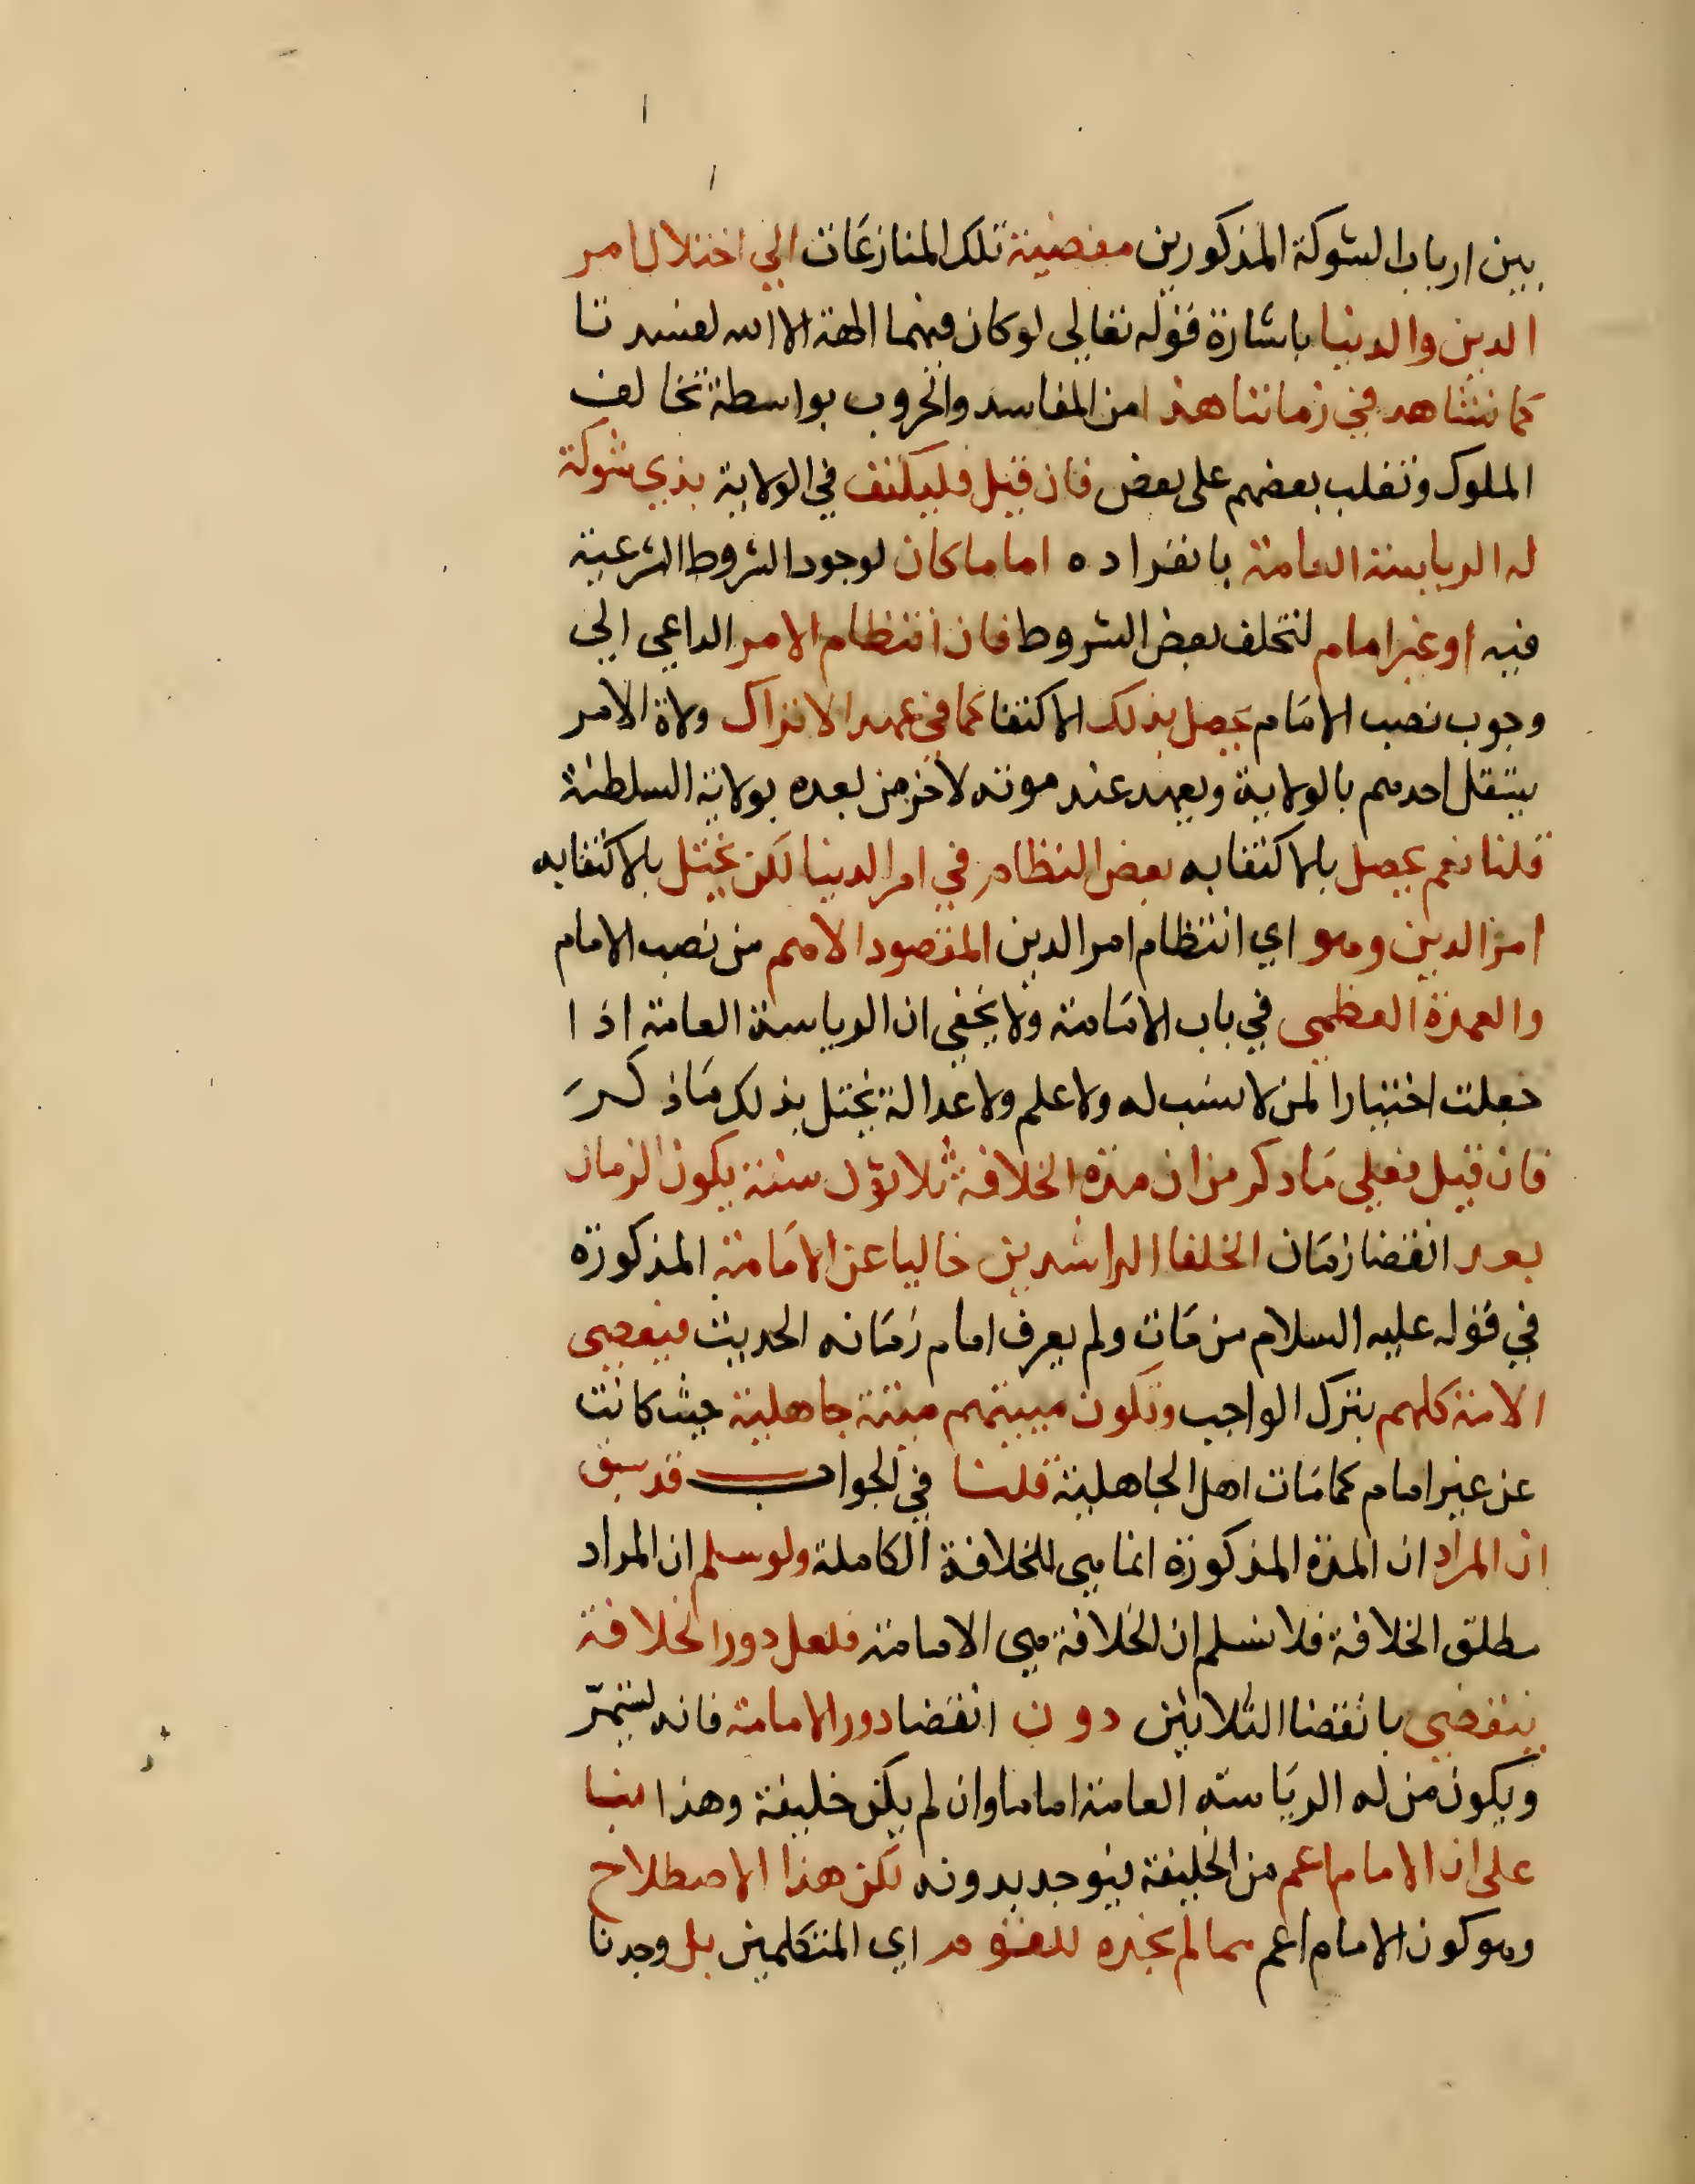 بين ارباب الشوكة المذكورين مفضية تلك المنازعات الي اختلال امر
الدين والدنيا باشارة قوله تعالى لو كان فيهما الهة الا الله لفسدتا
كما نشاهد في زماننا هذا من المفاسد والحروب بواسطة تخالف
الملوك وتغلب بعضهم على بعض فان قيل فليكتف في الولاية بذي شوكة
له الرياسة العامة بانفراده اماما كان لوجود الشروط الشرعية
فيه او غير امام لتخلف بعض الشروط فان انتظام الامر الداعي الي
وجوب نصب الامام يحصل بذلك الاكتفا كما في عهد الاتراك ولاة الامر
يستقل احدهم بالولاية ويعهد عند موته لاخر من بعده بولاية السلطنة
قلنا نعم يحصل بالاكتفا به بعض النظام في امر الدنيا لكن يختل بالاكتفا به
امر الدين وهو اي انتظام امر الدين المقصود الاهم من نصب الامام
والعمدة العظمى في باب الامامة ولا يخفي ان الرياسة العامة اذا
جعلت اختيارا لمن لا نسب له ولا علم ولا عدالة يختل بذلك ما ذكر
فان قيل فعلي ما ذكر من ان مدة الخلافة ثلاثون سنة يكون الزمان
بعد انقضا زمان الخلفا الراشدين خاليا عن الامامة المذكورة
في قوله عليه السلام من مات ولم يعرف امام زمانه الحديث فيعصي
الامة كلهم بترك الواجب وتكون ميتتهم ميتة جاهلية حيث كانت
عن غير امام كما مات اهل الجاهلية قلنا في الجواب قد سبق
ان المراد ان المدة المذكورة انما هي للخلافة الكاملة ولو سلم ان المراد
مطلق الخلافة فلا نسلم ان الخلافة هي الامامة فلعل دور الخلافة
ينقضي بانقضا الثلاثين دون انقضا دور الامامة فانه يستمر
ويكون من له الرياسة العامة اماما وان لم يكن خليفة وهذا بنا
على ان الامام اعم من الخليفة فيوجد بدونه لكن هذا الاصطلاح
وهو كون الامام اعم مما لم نجده للقوم اي المتكلمين بل وجدنا